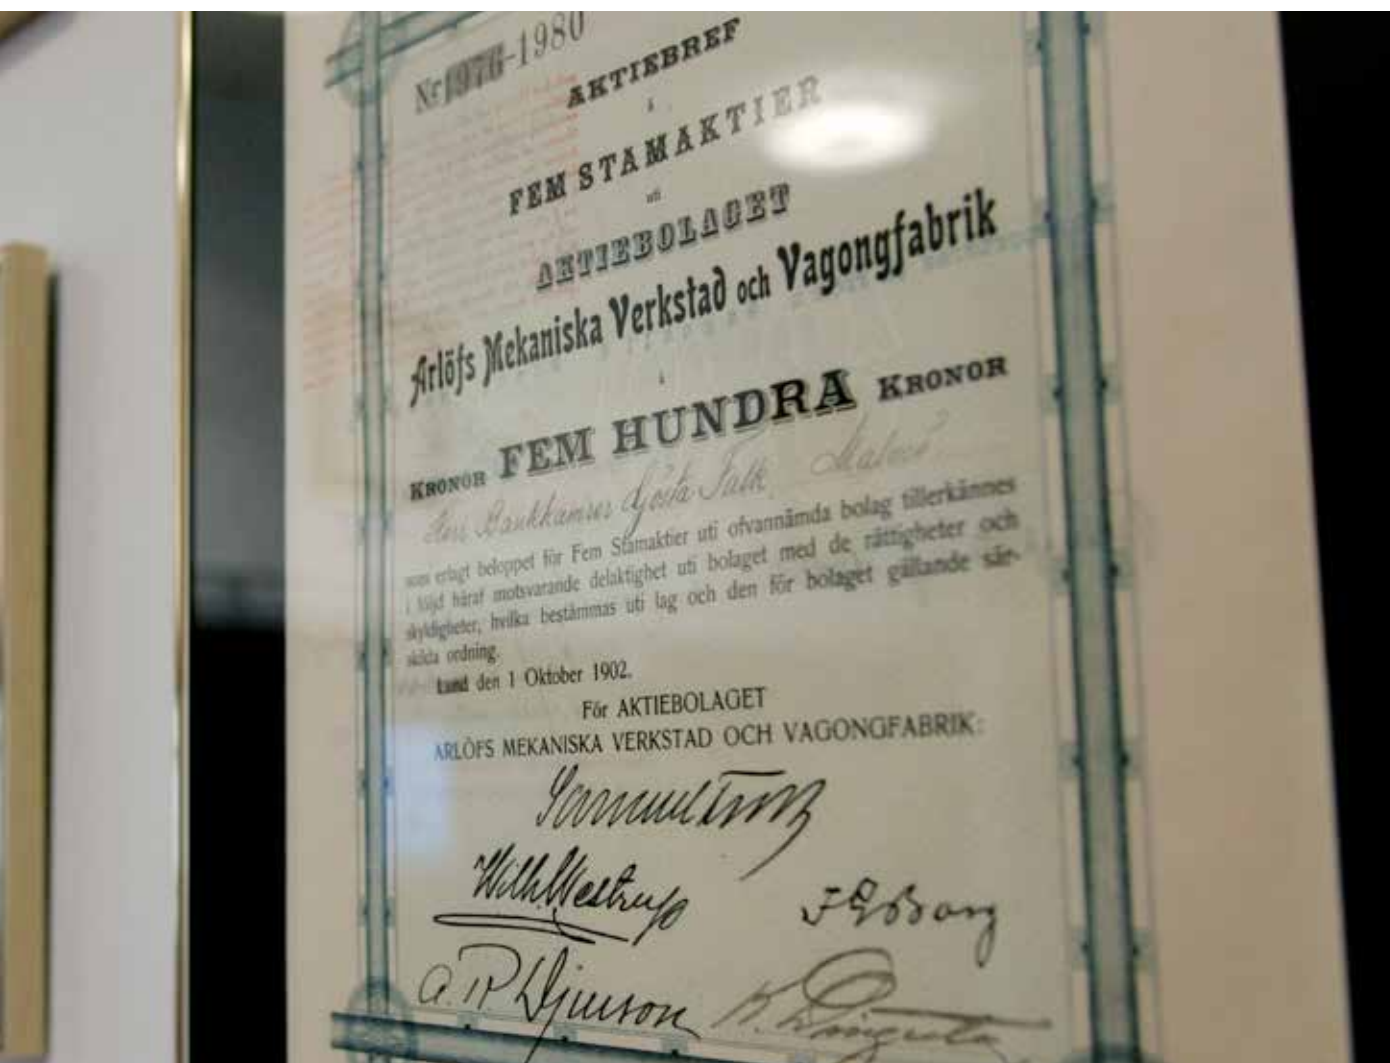 Nr 1976-1980
AKTIEBREF
å
FEM STAMAKTIER
uti
AKTIEBOLAGET
Arlöfs Mekaniska Verkstad och Vagongfabrik
å
KRONOR FEM HUNDRA KRONOR
Gösta Falk Malmö
som erlagt beloppet för Fem Stamaktier uti ofvannämda bolag tillerkännes
i följd häraf motsvarande delaktighet uti bolaget med de rättigheter och
skyldigheter, hvilka bestämmas uti lag och den för bolaget gällande sär-
skilda ordning.
Lund den 1 Oktober 1902.
För AKTIEBOLAGET
ARLÖFS MEKANISKA VERKSTAD OCH VAGONGFABRIK:
Wilh. Westrup